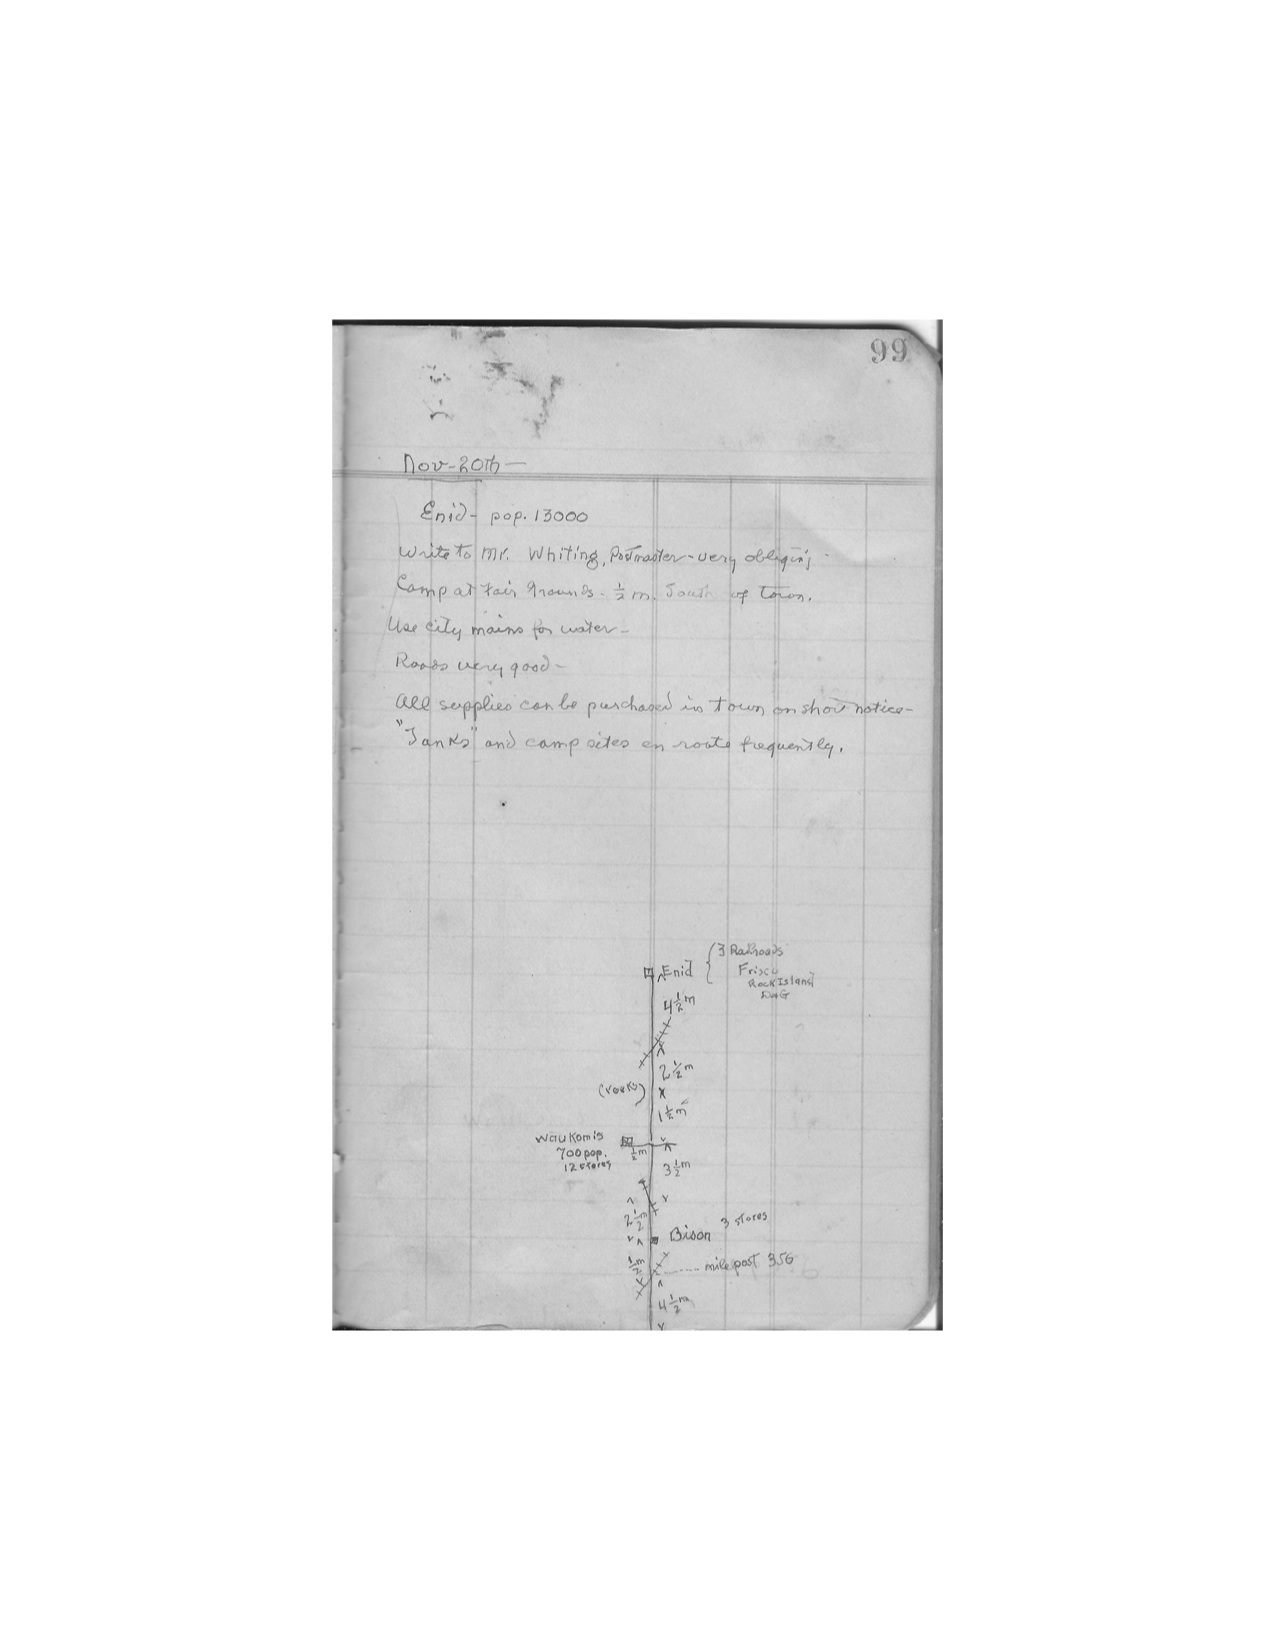 99
Nov-20th-
Enid- pop. 13000
Write to Mr. Whiting, Postmaster-very obliging
Camp at Fair Grounds. ½ m. South of town.
Use city mains for water-
Roads very good-
All supplies can be purchased in town on short notice-
"Tanks" and camp sites en route frequently.
3 Railroads
Enid
Frisco
Rock Island
4½m
2½m
1½m
Waukomis
½m
700 pop.
12 stores
3½m
2½m
3 stores
Bison
mile post 356
½m
4½m